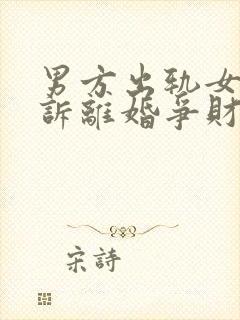 男方出轨女
訴離婚爭財
宋詩